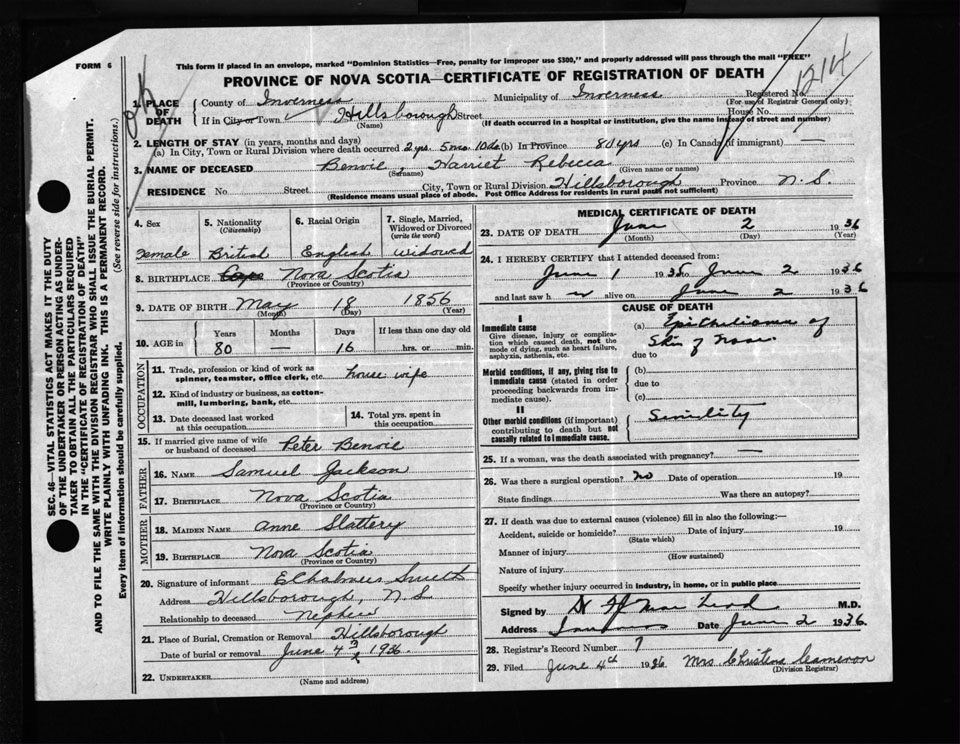 FORM 6
This form if placed in an envelope, marked "Dominion Statistics—Free, penalty for improper use $300," and properly addressed will pass through the mail "FREE"
PROVINCE OF NOVA SCOTIA—CERTIFICATE OF REGISTRATION OF DEATH
1214
Registered No.
(For use of Registrar General only)
1. PLACE OF DEATH
County of Inverness Municipality of Inverness
If in City or Town Hillsborough Street House No.
(Name) (If death occurred in a hospital or institution, give the name instead of street and number)
2. LENGTH OF STAY (in years, months and days)
(a) In City, Town or Rural Division where death occurred 2 yrs. 5 mo. 10 da (b) In Province 80 yrs (c) In Canada (if immigrant) —
3. NAME OF DECEASED Benvie, Harriet Rebecca
(Surname) (Given name or names)
RESIDENCE No. Street City, Town or Rural Division Hillsborough Province N. S.
(Residence means usual place of abode. Post Office Address for residents in rural parts not sufficient)
4. Sex 5. Nationality (Citizenship) 6. Racial Origin 7. Single, Married, Widowed or Divorced (write the word)
Female British English Widowed
8. BIRTHPLACE Cape Nova Scotia
(Province or Country)
9. DATE OF BIRTH May 18 1856
(Month) (Day) (Year)
10. AGE in Years Months Days If less than one day old
80 — 16 hrs. or min.
OCCUPATION
11. Trade, profession or kind of work as spinner, teamster, office clerk, etc. house wife
12. Kind of industry or business, as cotton-mill, lumbering, bank, etc.
13. Date deceased last worked at this occupation
14. Total yrs. spent in this occupation
15. If married give name of wife or husband of deceased Peter Benvie
FATHER
16. NAME Samuel Jackson
17. BIRTHPLACE Nova Scotia
(Province or Country)
MOTHER
18. MAIDEN NAME Anne Slattery
19. BIRTHPLACE Nova Scotia
(Province or Country)
20. Signature of informant E Chalmers Smith
Address Hillsborough, N. S
Relationship to deceased Nephew
21. Place of Burial, Cremation or Removal Hillsborough
Date of burial or removal June 4 1936.
22. UNDERTAKER
(Name and address)
MEDICAL CERTIFICATE OF DEATH
23. DATE OF DEATH June 2 1936
(Month) (Day) (Year)
24. I HEREBY CERTIFY that I attended deceased from:
June 1 1935 to June 2 1936
and last saw her alive on June 2 1936
CAUSE OF DEATH
I
Immediate cause
Give disease, injury or complication which caused death, not the mode of dying, such as heart failure, asphyxia, asthenia, etc.
(a) Epithelioma of
Skin of Nose
due to
Morbid conditions, if any, giving rise to immediate cause (stated in order proceeding backwards from immediate cause).
(b)
due to
(c)
II
Other morbid conditions (if important) contributing to death but not causally related to immediate cause.
Senility
25. If a woman, was the death associated with pregnancy? —
26. Was there a surgical operation? no Date of operation 19
State findings Was there an autopsy?
27. If death was due to external causes (violence) fill in also the following:—
Accident, suicide or homicide? Date of injury 19
(State which)
Manner of injury
(How sustained)
Nature of injury
Specify whether injury occurred in industry, in home, or in public place
Signed by M.D.
Address Date June 2 1936.
28. Registrar's Record Number 7
29. Filed June 4th 1936 Mrs Christena Cameron
(Division Registrar)
SEC. 46—VITAL STATISTICS ACT MAKES IT THE DUTY
OF THE UNDERTAKER OR PERSON ACTING AS UNDER-
TAKER TO OBTAIN ALL THE PARTICULARS REQUIRED
IN THE "CERTIFICATE OF REGISTRATION OF DEATH"
AND TO FILE THE SAME WITH THE DIVISION REGISTRAR WHO SHALL ISSUE THE BURIAL PERMIT.
WRITE PLAINLY WITH UNFADING INK. THIS IS A PERMANENT RECORD.
Every item of information should be carefully supplied. (See reverse side for instructions.)